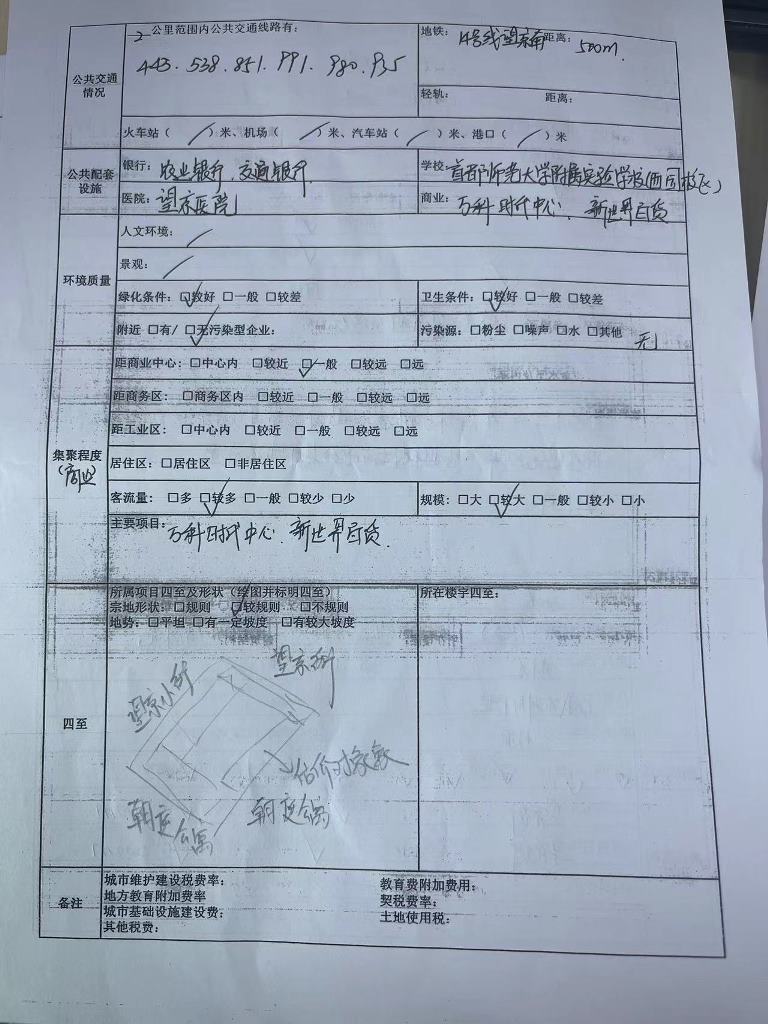 公共交通情况
2公里范围内公共交通线路有:
443. 538. 851. 991. 980. 935
地铁: 14号线望京南 距离: 500m.
轻轨: 距离:
火车站( / )米、机场( / )米、汽车站( / )米、港口( / )米
公共配套设施
银行: 农业银行. 交通银行.
学校: 首都师范大学附属实验学校(西园校区)
医院: 望京医院
商业: 万科时代中心、新世界百货
环境质量
人文环境: /
景观: /
绿化条件: ☑较好 □一般 □较差
卫生条件: ☑较好 □一般 □较差
附近 □有/ ☑无污染型企业:
污染源: □粉尘 □噪声 □水 □其他 无
集聚程度
(商业)
距商业中心: □中心内 □较近 ☑一般 □较远 □远
距商务区: □商务区内 □较近 □一般 □较远 □远
距工业区: □中心内 □较近 □一般 □较远 □远
居住区: □居住区 □非居住区
客流量: □多 ☑较多 □一般 □较少 □少
规模: □大 ☑较大 □一般 □较小 □小
主要项目: 万科时代中心、新世界百货.
四至
所属项目四至及形状(绘图并标明四至)
宗地形状: □规则 ☑较规则 □不规则
地势: □平坦 □有一定坡度 □有较大坡度
所在楼宇四至:
望京
望京
估价对象
朝庭公寓
朝庭公寓
备注
城市维护建设税费率:
教育费附加费用:
地方教育附加费率
契税费率:
城市基础设施建设费:
土地使用税:
其他税费: